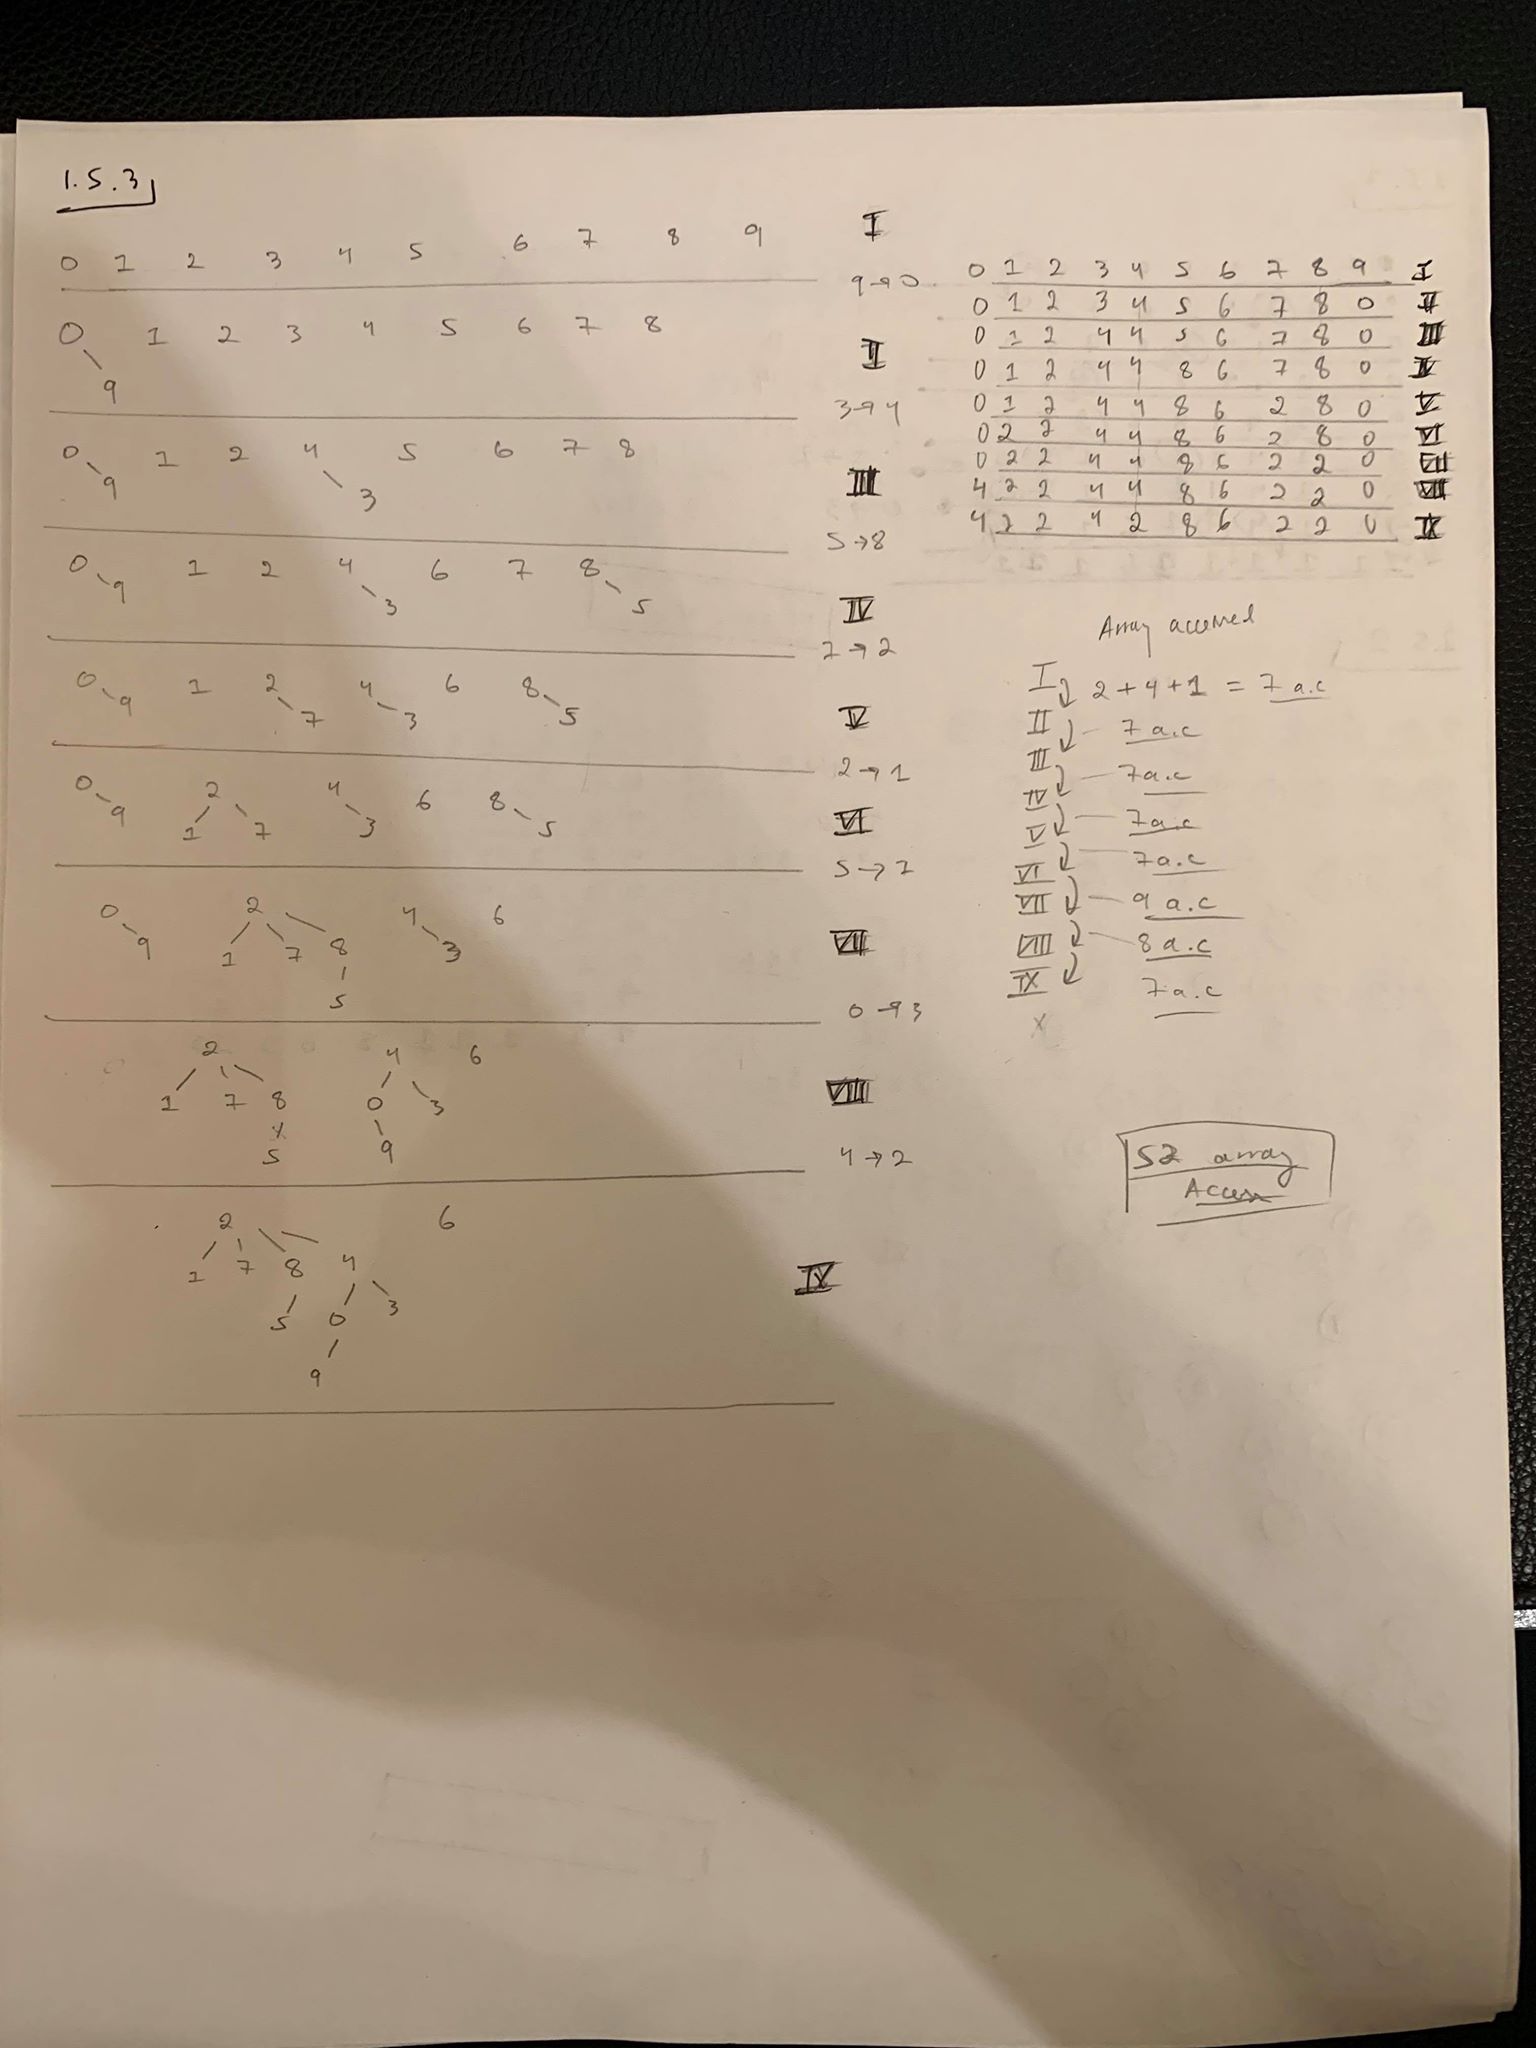 1.5.3
0 1 2 3 4 5 6 7 8 9 I
9→0
0 1 2 3 4 5 6 7 8
9
II
3→4
0 1 2 4 5 6 7 8
9 3
III
5→8
0 1 2 4 6 7 8
9 3 5
IV
7→2
0 1 2 4 6 8
9 7 3 5
V
2→1
0 2 4 6 8
9 1 7 3 5
VI
5→7
0 2 4 6
9 1 7 8 3
5
VII
0→3
2 4 6
1 7 8 0 3
5 9
VIII
4→2
2 6
1 7 8 4
5 0 3
9
IX
0 1 2 3 4 5 6 7 8 9 I
0 1 2 3 4 5 6 7 8 0 II
0 1 2 4 4 5 6 7 8 0 III
0 1 2 4 4 8 6 7 8 0 IV
0 1 2 4 4 8 6 2 8 0 V
0 2 2 4 4 8 6 2 8 0 VI
0 2 2 4 4 8 6 2 2 0 VII
4 2 2 4 4 8 6 2 2 0 VIII
4 2 2 4 2 8 6 2 2 0 IX
Array accessed
I 2+4+1 = 7 a.c
II 7 a.c
III 7a.c
IV 7a.c
V 7a.c
VI 9 a.c
VII 8 a.c
VIII 7a.c
IX
X
52 array
Access